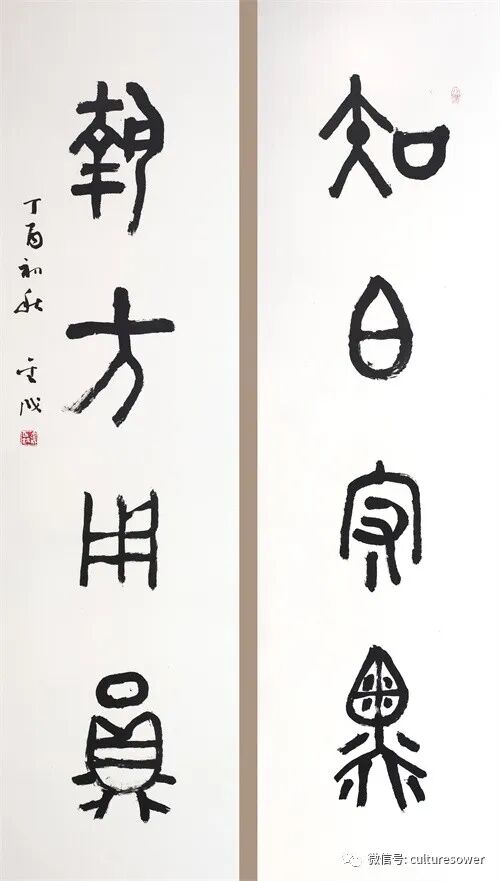 知白守黑
執方用員
丁酉初秋
微信号: culturesower